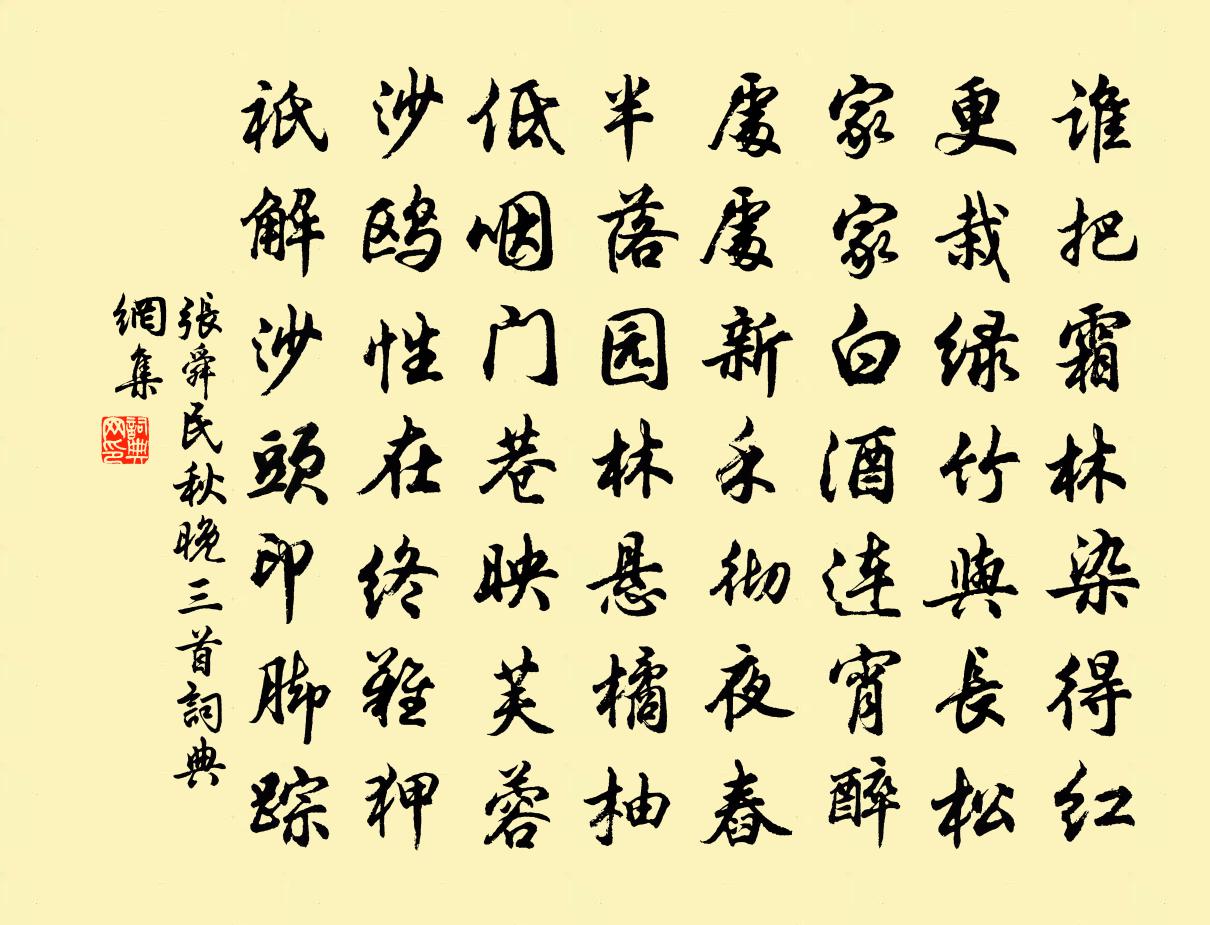 谁把霜林染得红
更栽绿竹與長松
家家白酒连宵醉
處處新禾彻夜舂
半落园林悬橘柚
低咽门巷映芙蓉
沙鸥性在终難狎
祇解沙頭印脚踪
張舜民秋晚三首詞典
網集
詞典
网印